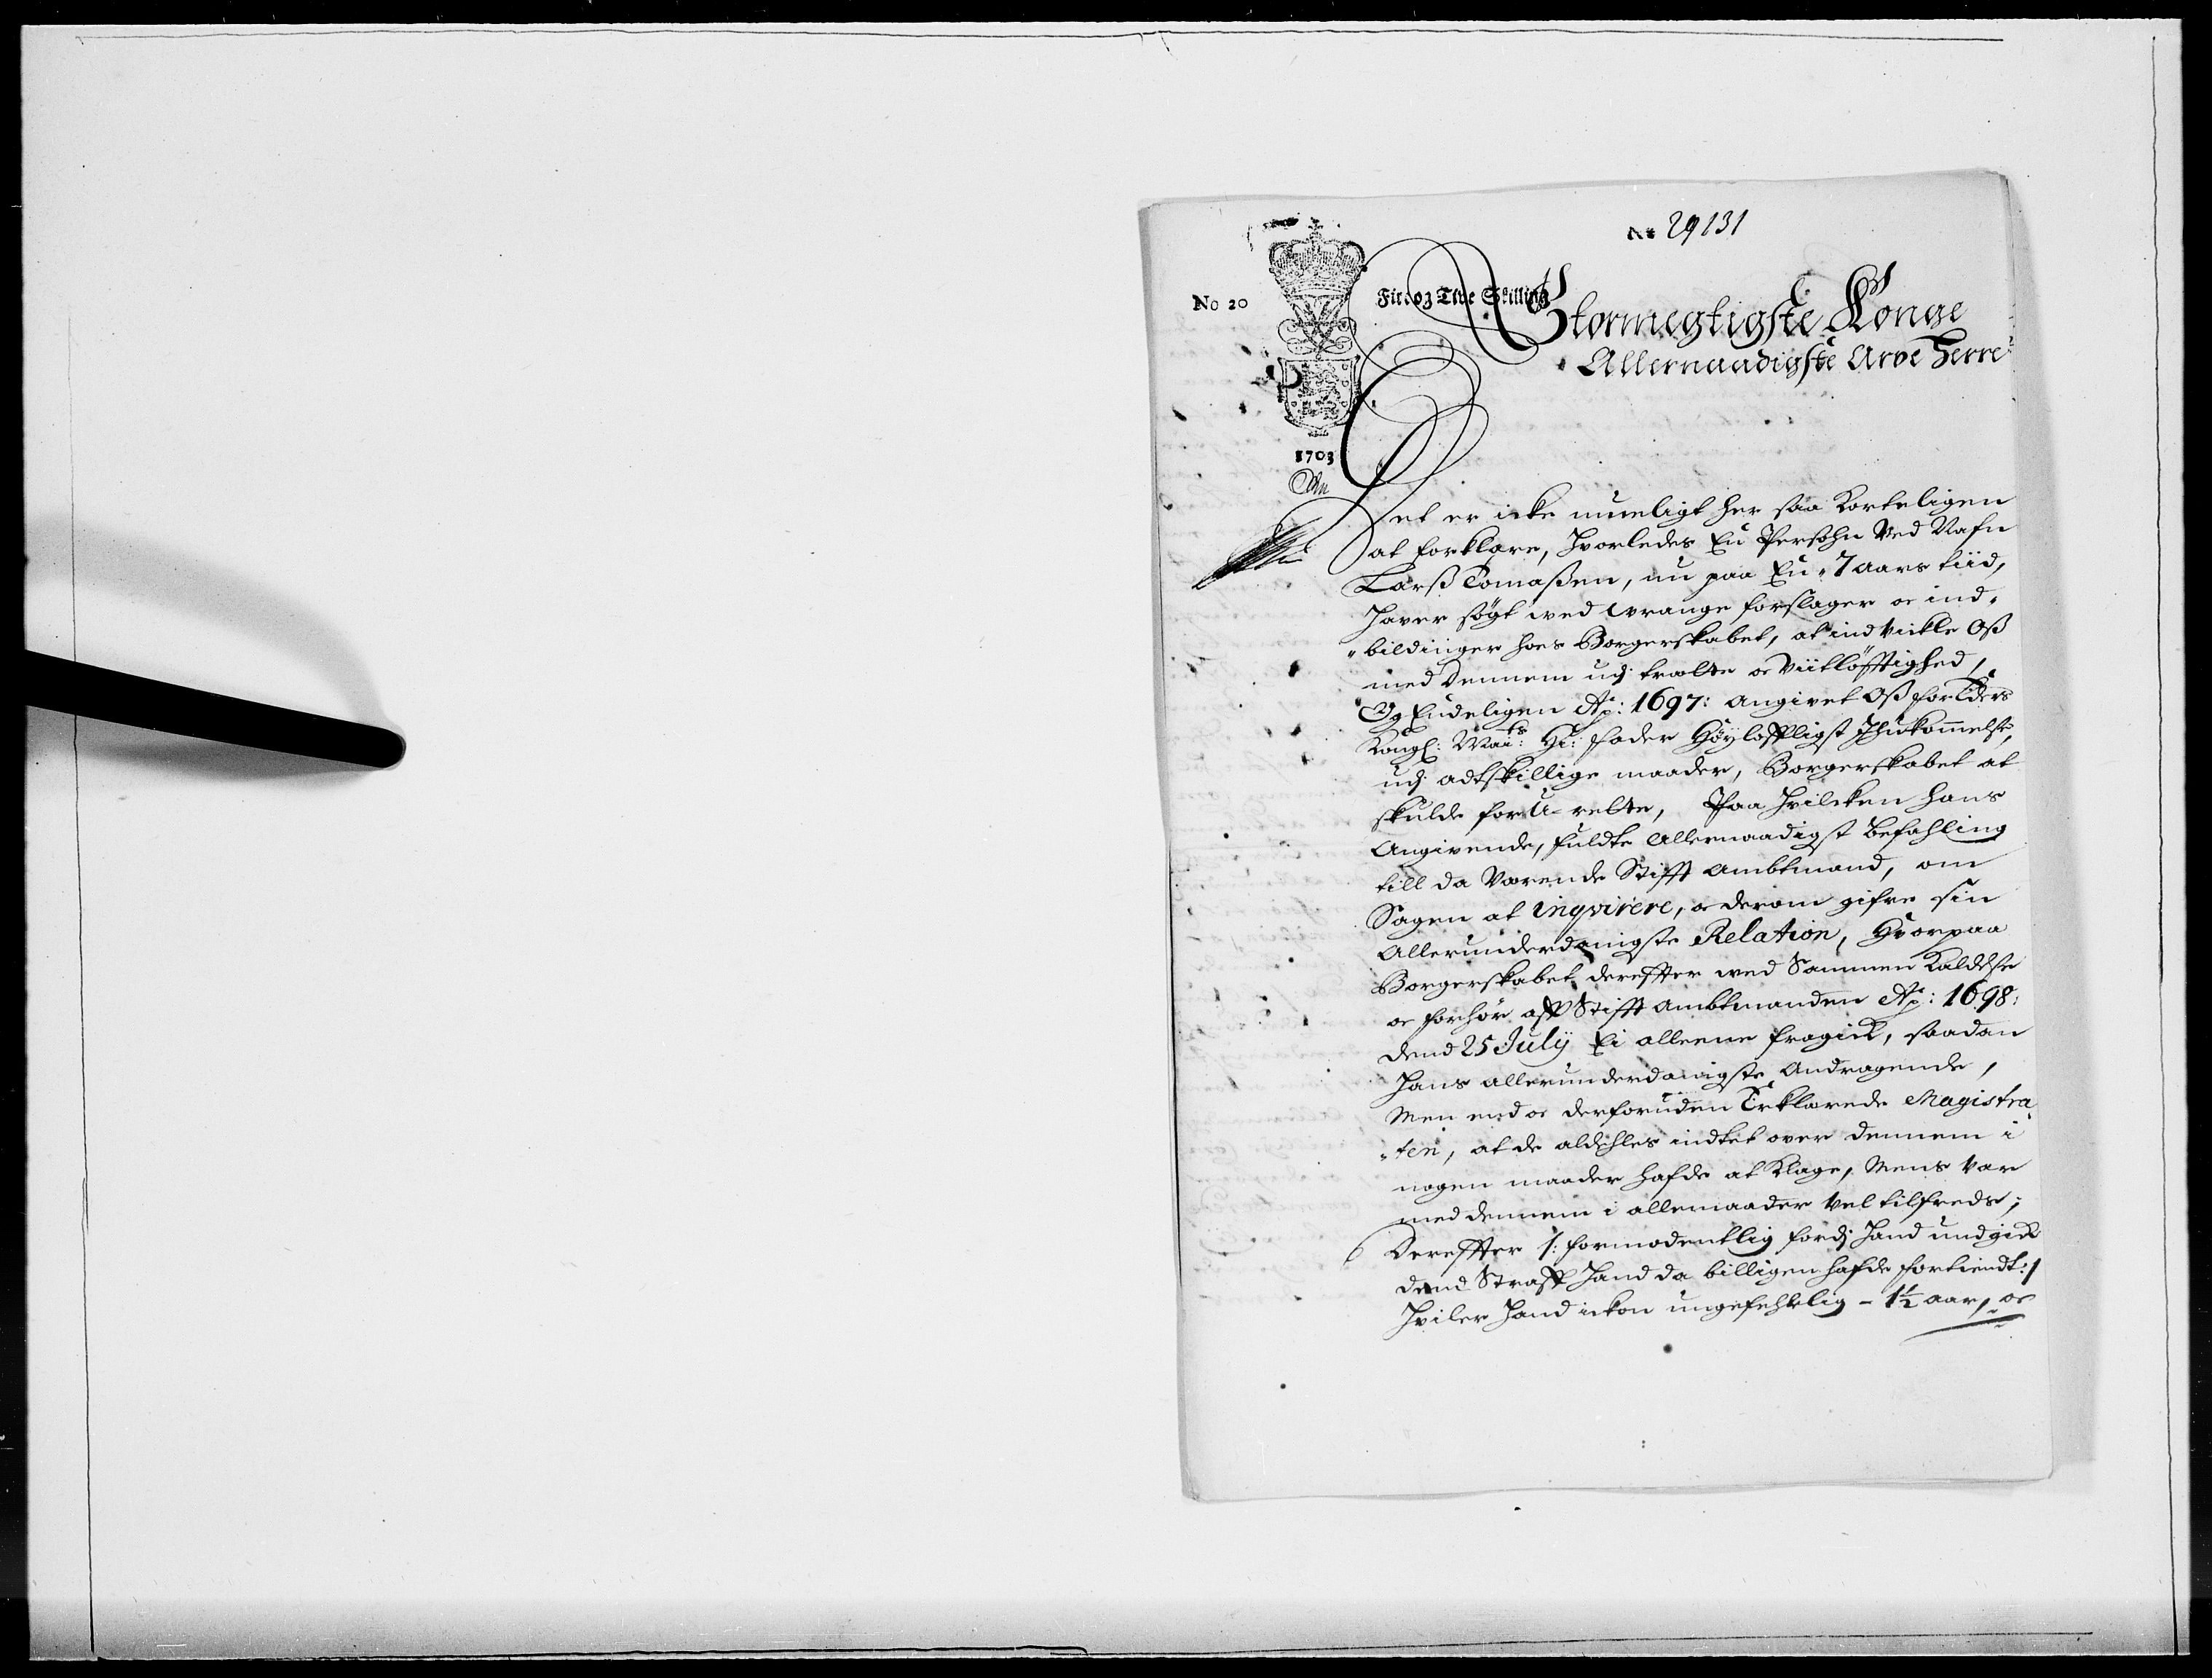 No 29131
No 20
Fire og Tive Skilling
Stormegtigste Konge
Allernaadigste Arve Herre
1703
Det er icke mueligt her saa Korteligen
at forklare, hvorledes En Persohn Ved Nafn
Larß Tomaßen, nu paa En 7 aars tiid,
haver søgt med wrange forslager oc ind„
„bildinger hoes Borgerskabet, at indvickle Oß
med dennem udj trætte oc Viitløfftighed,
Og Endeligen Ao: 1697: angivet Oß for Eders
Kongl: Maits: Hr: Fader Høylofligst Ihukommelse,
udj adtskillige maader, Borgerskabet at
skulde for U-rette, Paa hvilcken hans
Angivende, fuldte Allernaadigst Befahling
till da Værende Stifft Ambtmand, om
Sagen at inqvirere, oc derom gifve sin
Allerunderdanigste Relation, Hvorpaa
Borgerskabet derefter ved Sammen Kaldelse
oc forhør aff Stifft Ambtmanden Ao: 1698:
dend 25 July Ei alleene fragick, saadan
hans allerunderdanigste Andragende,
Men end oc derforuden Erklærede Magistra„
„ten, at de aldehles indtet over dennem i
nogen maader hafde at Klage, Mens var
med dennem i allemaader Vel tilfreds;
Dereffter /: formodentlig fordj hand undgick
dend Straff hand da billigen hafde fortiendt :/
hviler hand ickon ungefehrlig - 1½ aar, oc